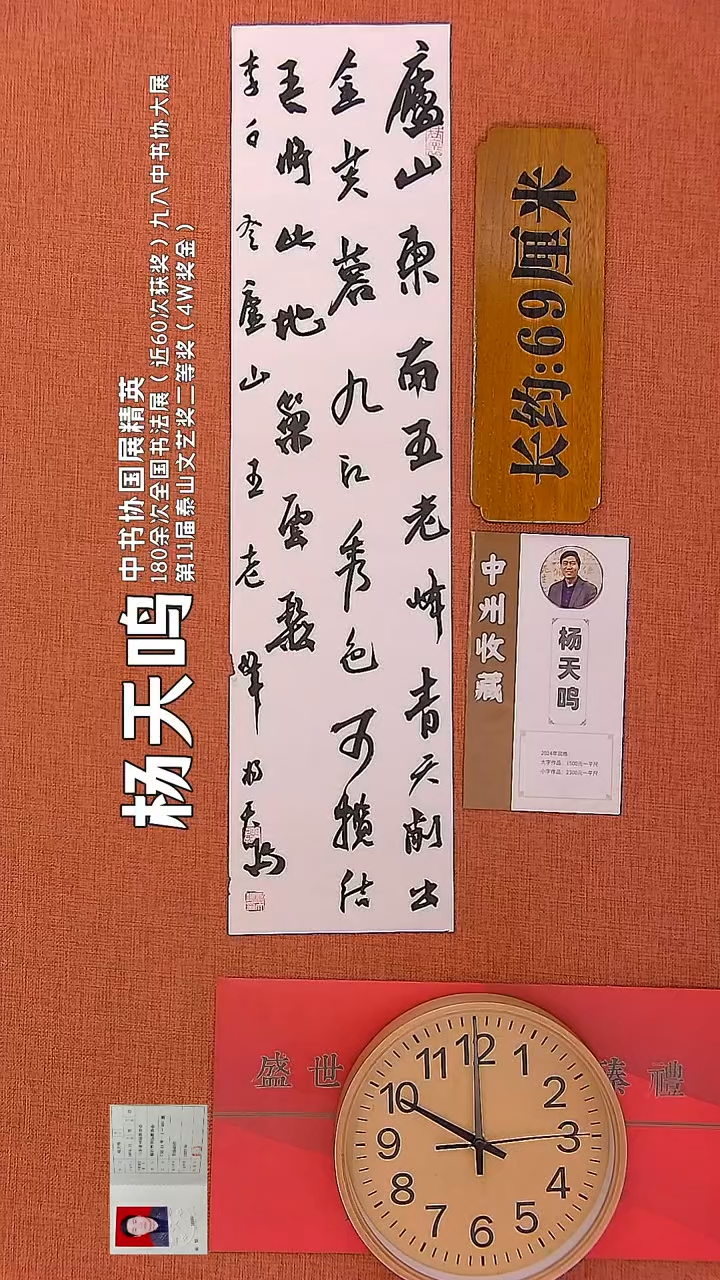 廬山東南五老峰青天削出
金芙蓉九江秀色可攬結
吾將此地巢雲鬆
李白登廬山五老峰 楊天鳴
杨天鸣
中书协国展精英
180余次全国书法展（近60次获奖）九八中书协大展
第11届泰山文艺奖二等奖（4W奖金）
长约:69厘米
中州收藏
杨天鸣
大字作品：1500元一平尺
小字作品：2300元一平尺
盛世
禮
12
1
2
3
4
5
6
7
8
9
10
11